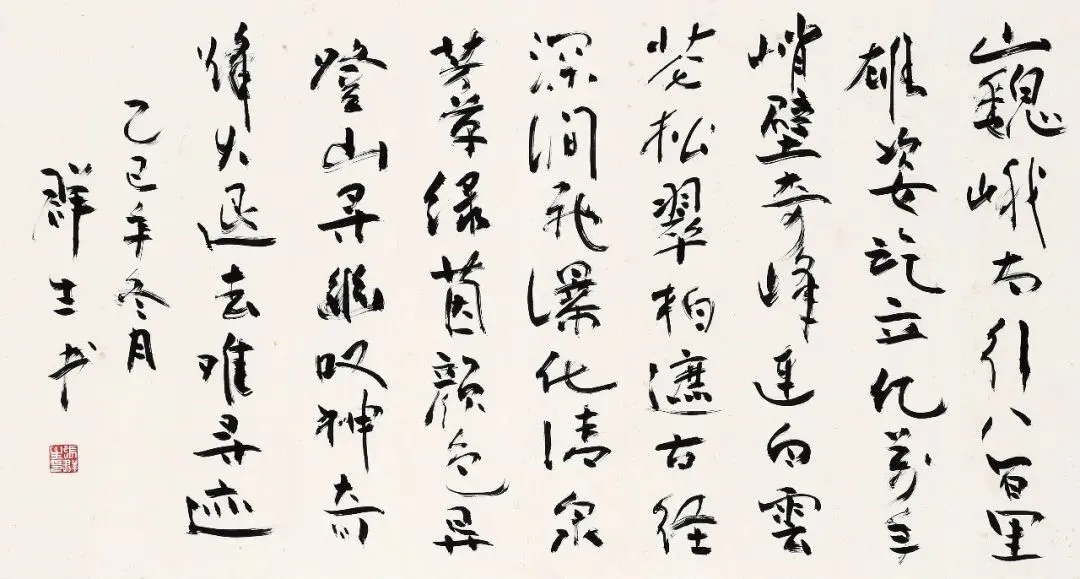 巍峨太行八百里
雄姿屹立亿万年
峭壁奇峰连白雲
苍松翠柏遮古径
深涧飞瀑化清泉
芳草绿茵颜色异
登山寻幽叹神奇
烽火退去难寻迹
乙巳年冬月
群生书
張群生印